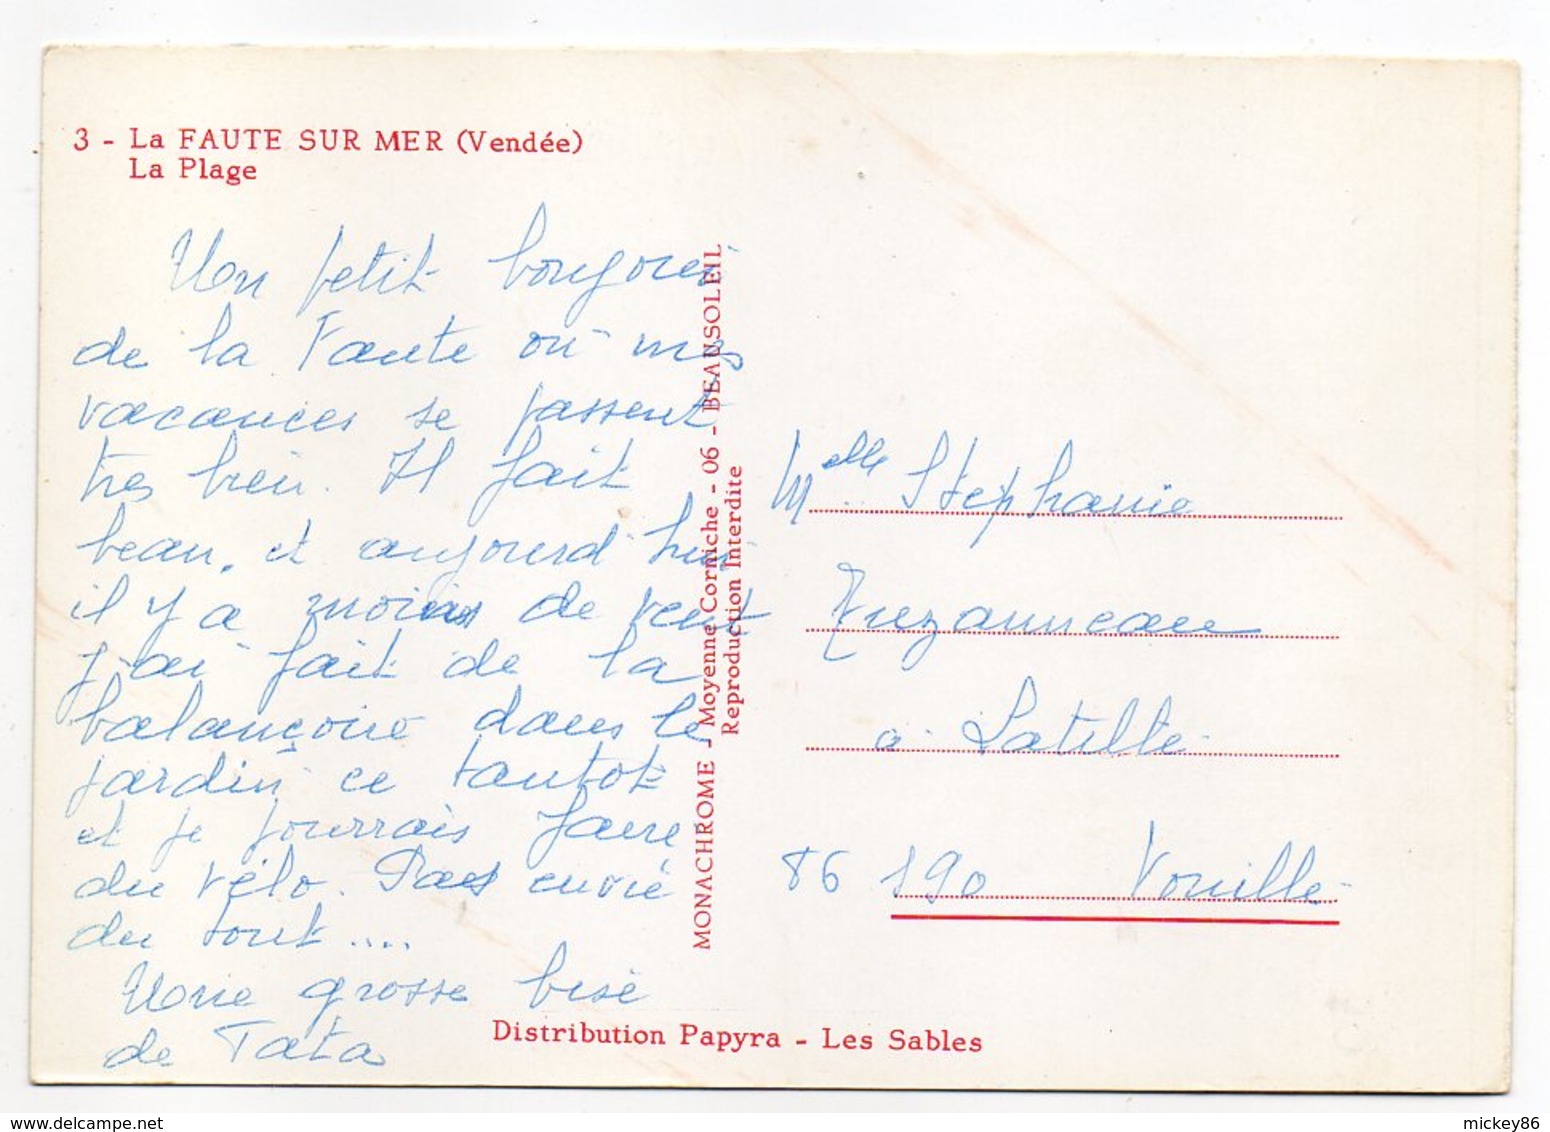 3 - La FAUTE SUR MER (Vendée)
La Plage
Un petit bonjour
de la Faute où mes
vacances se passent
très bien. Il fait
beau, et aujourd'hui
il y a moins de vent
j'ai fait de la
balançoire dans le
jardin ce tantot
et je pourrais faire
du vélo. Pas envie
du tout....
Une grosse bise
de Tata
MONACHROME - Moyenne Corniche - 06 - BEAUSOLEIL
Reproduction Interdite
Melle Stephanie
à Latille
86 190 Vouille
Distribution Papyra - Les Sables
www.delcampe.net
mickey86